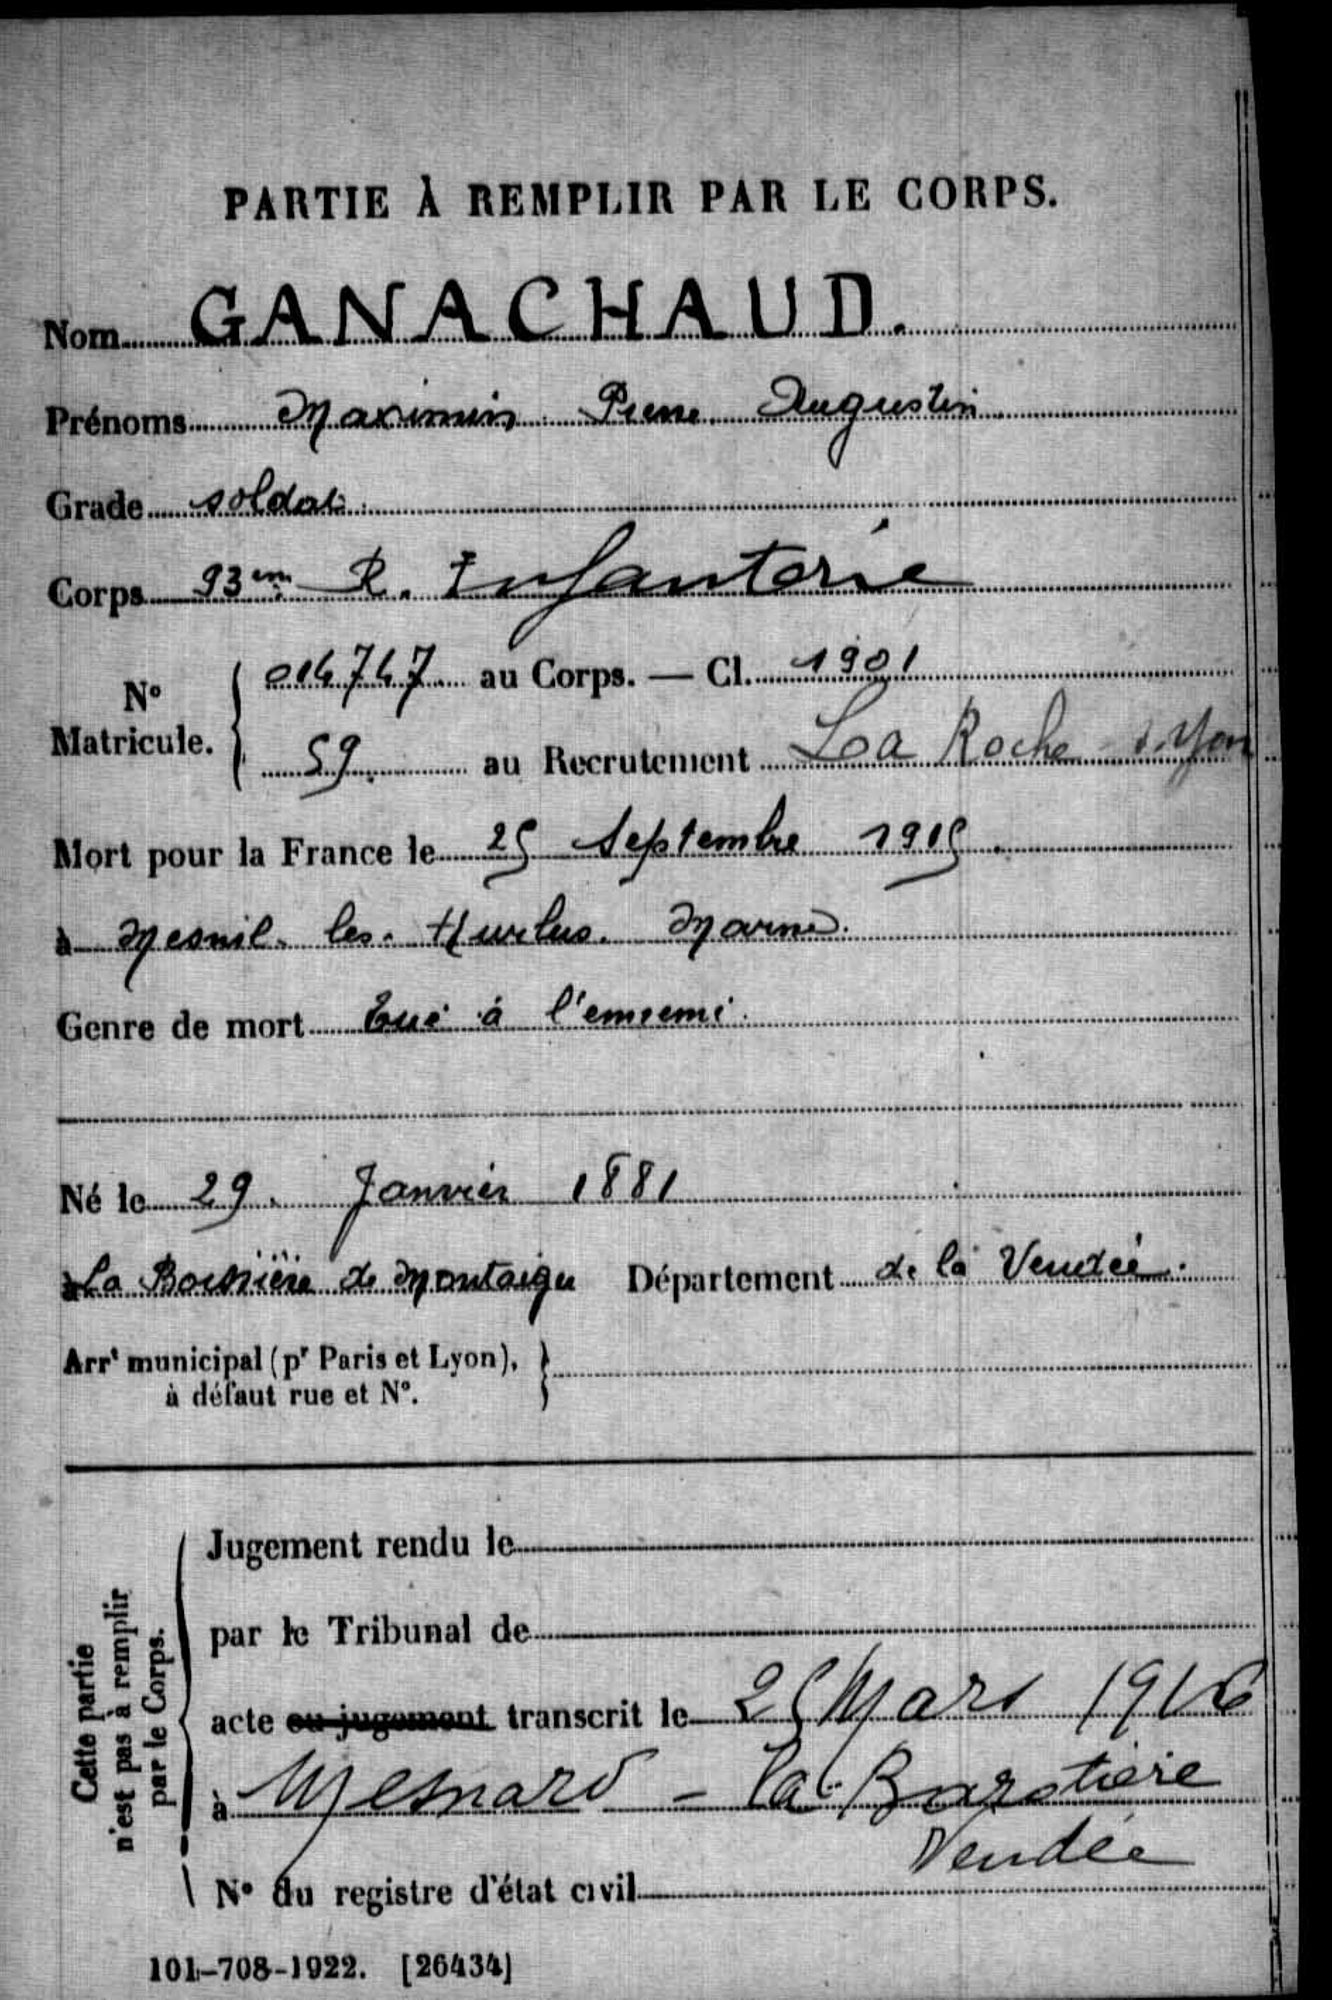 PARTIE À REMPLIR PAR LE CORPS.
Nom GANACHAUD.
Prénoms Maximin Pierre Augustin
Grade soldat
Corps 93em R. Infanterie
N° Matricule. 014747 au Corps. — Cl. 1901
59 au Recrutement La Roche s. Yon
Mort pour la France le 25 Septembre 1915
à Mesnil. les. Hurlus. Marne.
Genre de mort Tué à l'ennemi
Né le 29. Janvier 1881
à La Boissière de Montaigu Département de la Vendée.
Arrt municipal (pr Paris et Lyon),
à défaut rue et N°.
Cette partie
n'est pas à remplir
par le Corps.
Jugement rendu le
par le Tribunal de
acte ou jugement transcrit le 25 Mars 1916
à Mesnard - la - Barotière
Vendée
N° du registre d'état civil
101-708-1922. [26434]